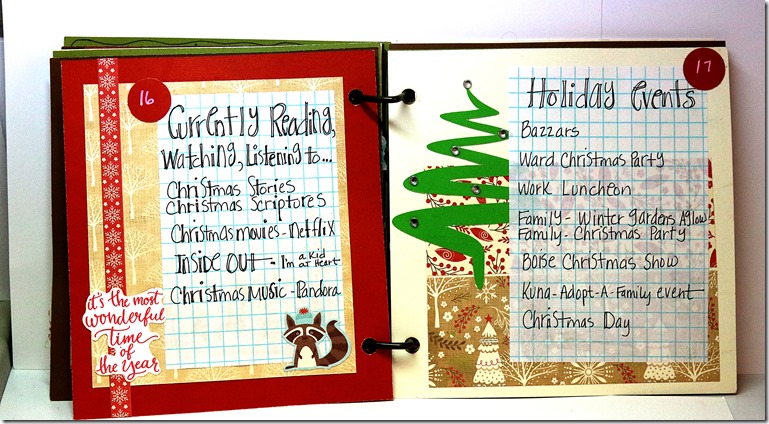 16
Currently Reading,
Watching, Listening to...
Christmas Stories
Christmas Scriptores
Christmas movies - Netflix
Inside Out - I'm a kid
at Heart
Christmas Music - Pandora
it's the most
wonderful
time
is of
the year
17
Holiday Events
Bazzars
Ward Christmas Party
Work Luncheon
Family - Winter Gardens Aglow
Family - Christmas Party
Boise Christmas Show
Kuna - Adopt - A - Family event
Christmas Day